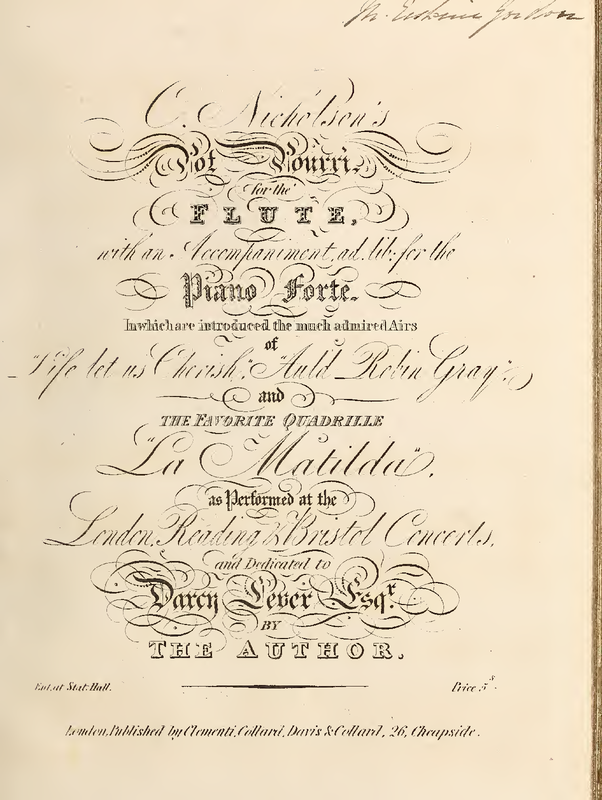 Mr. Erskine Gordon
C. Nicholson's
Pot Pourri,
for the
FLUTE,
with an Accompaniment, ad. lib: for the
Piano Forte.
In which are introduced the much admired Airs
of
"Life let us Cherish", "Auld Robin Gray",
and
THE FAVORITE QUADRILLE
"La Matilda",
as Performed at the
London, Reading & Bristol Concerts,
and Dedicated to
Darcy Lever Esqr.
BY
THE AUTHOR.
Ent. at Stat. Hall.
Price 5s.
London, Published by Clementi, Collard, Davis & Collard, 26, Cheapside.